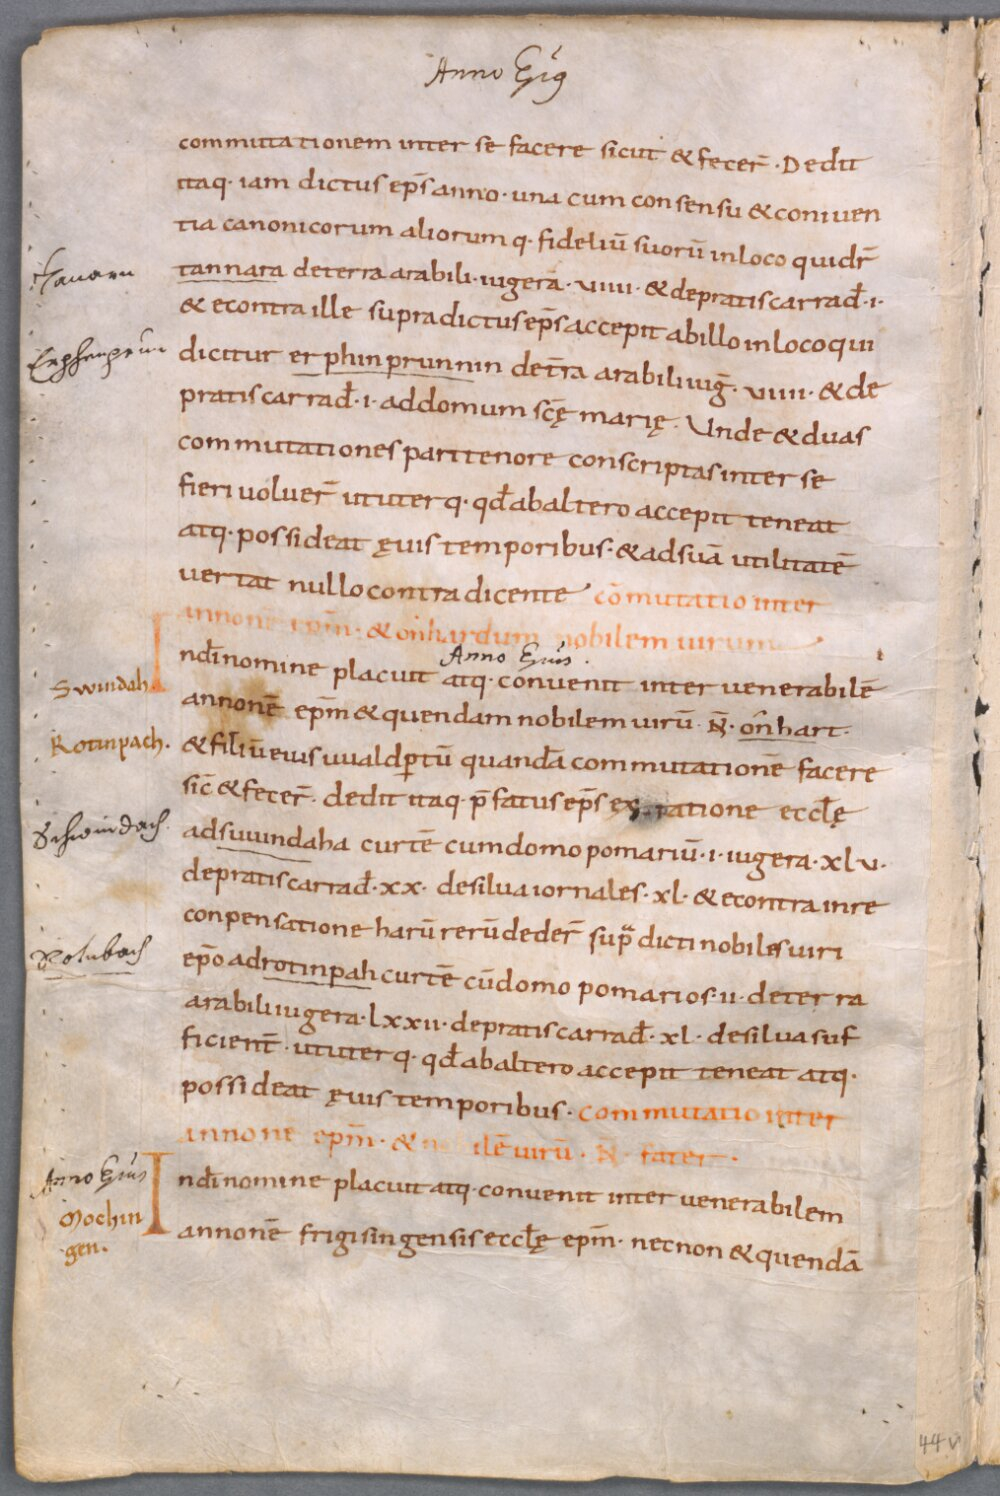 Anno Ep̃s
commutationem inter se facere sicut &fecer̄. Dedit
itaq· iam dictus ep̄s anno· una cum consensu &coniuen
tia canonicorum aliorum q· fideliū suorū inloco quidr̄
Tanarn
tannara deterra arabili· iugera· viiii· &depratis carrad̄·i·
& econtra ille supradictus ep̄s accepit abillo inloco qui
Erphenprun
dicitur erphinprunnin det̄ra arabili iuḡ· viiii· & de
pratis carrad̄·i· addomum sc̄ę marię. Unde &duas
commutationes pari tenore conscriptas inter se
fieri uoluer̄ ut uterq· qd̄ abaltero accepit teneat
atq· possideat ęuis temporibus· &adsuā utilitatē
uertat nullo contradicente cōmutatio inter
annonē epm̄· & onhardum nobilem uirum
Anno Ep̃us
ndīnomine placuit atq· conuenit inter uenerabilē
Swindah
annonē epm̄ &quendam nobilem uirū N̄· onhart·
Rotinpach.
&filiū eius uualdptū quandā commutationē facere
sic̄ &fecer̄· dedit itaq· p̄fatus ep̄s ex ratione eccłę
Schwindach
adsuuindaha curtē cumdomo pomariū·i· iugera· xlv·
depratis carrad̄·xx· desilua iornales· xl· & econtra inre
conpensatione harū rerū deder̄ sup̄dicti nobiles uiri
Rotnbach
ep̄o adrotinpah curtē cūdomo pomarios·ii· deterra
arabili iugera· lxxii· depratis carrad̄· xl· desilua suf
ficient̄· ut uterq· qd̄ abaltero accepit teneat atq·
possideat ęuis temporibus· commutatio inter
annone epm̄· & nobilē uirū· N̄· fater·
Anno Ep̃us
Indīnomine placuit atq· conuenit inter uenerabilem
Mochin
gen.
annonē frigisingensis eccłę epm̄· necnon &quendā
44v